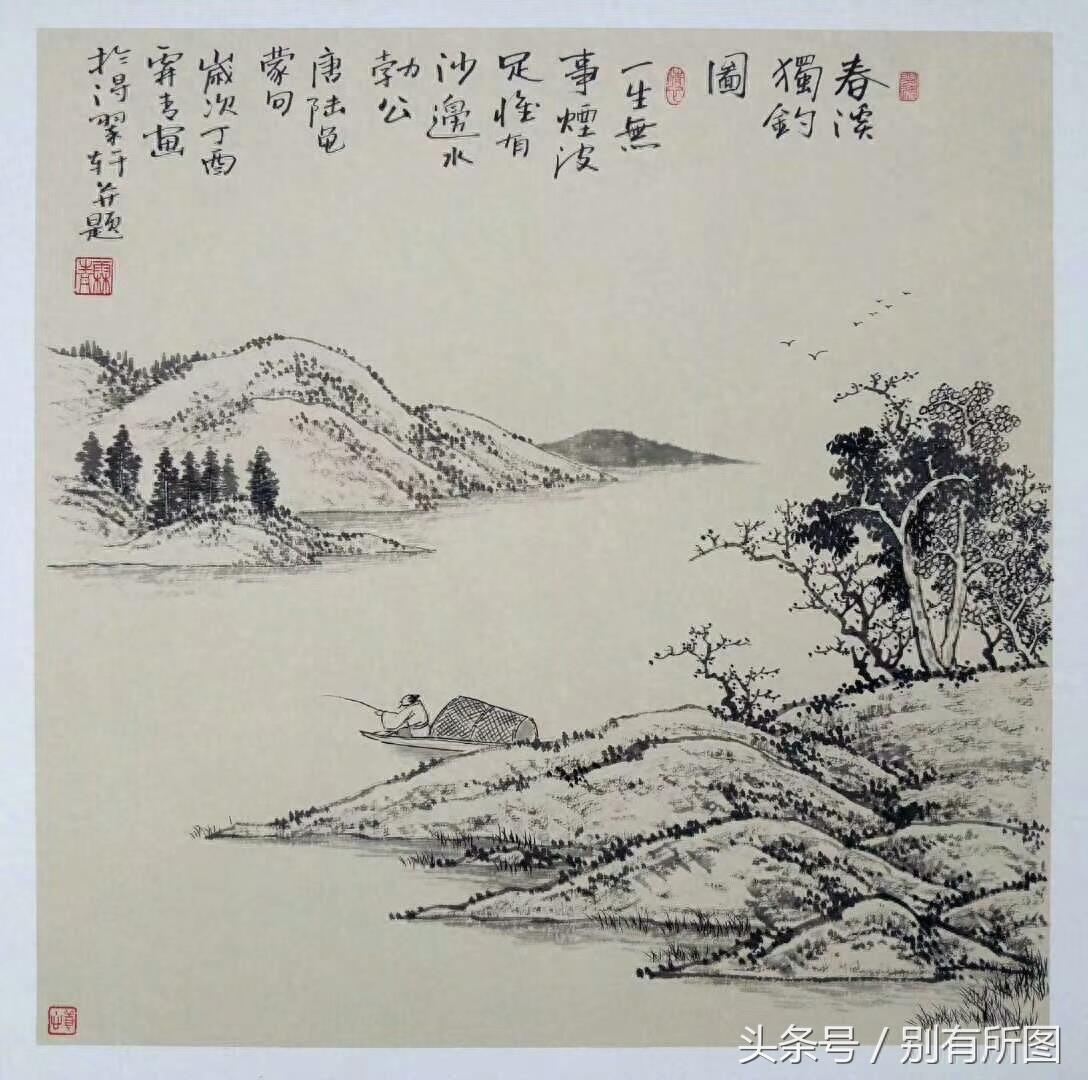 春溪
獨釣
圖
一生無
事煙波
足惟有
沙邊水
勃公
唐陸龟
蒙句
歲次丁酉
霖青畫
於得翠轩并题
头条号 / 别有所图